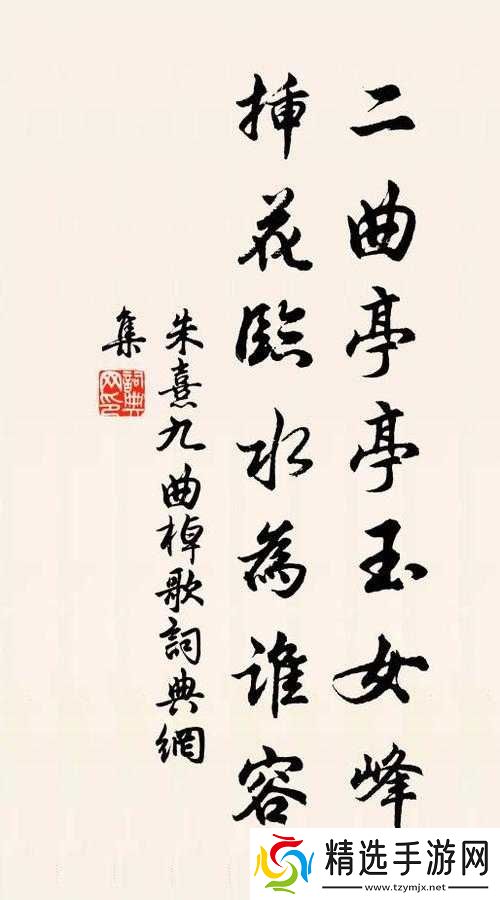 二曲亭亭玉女峰
插花臨水為誰容
朱熹九曲棹歌詞典網
集
詞典網印
精选手游网
www.tzymjx.net